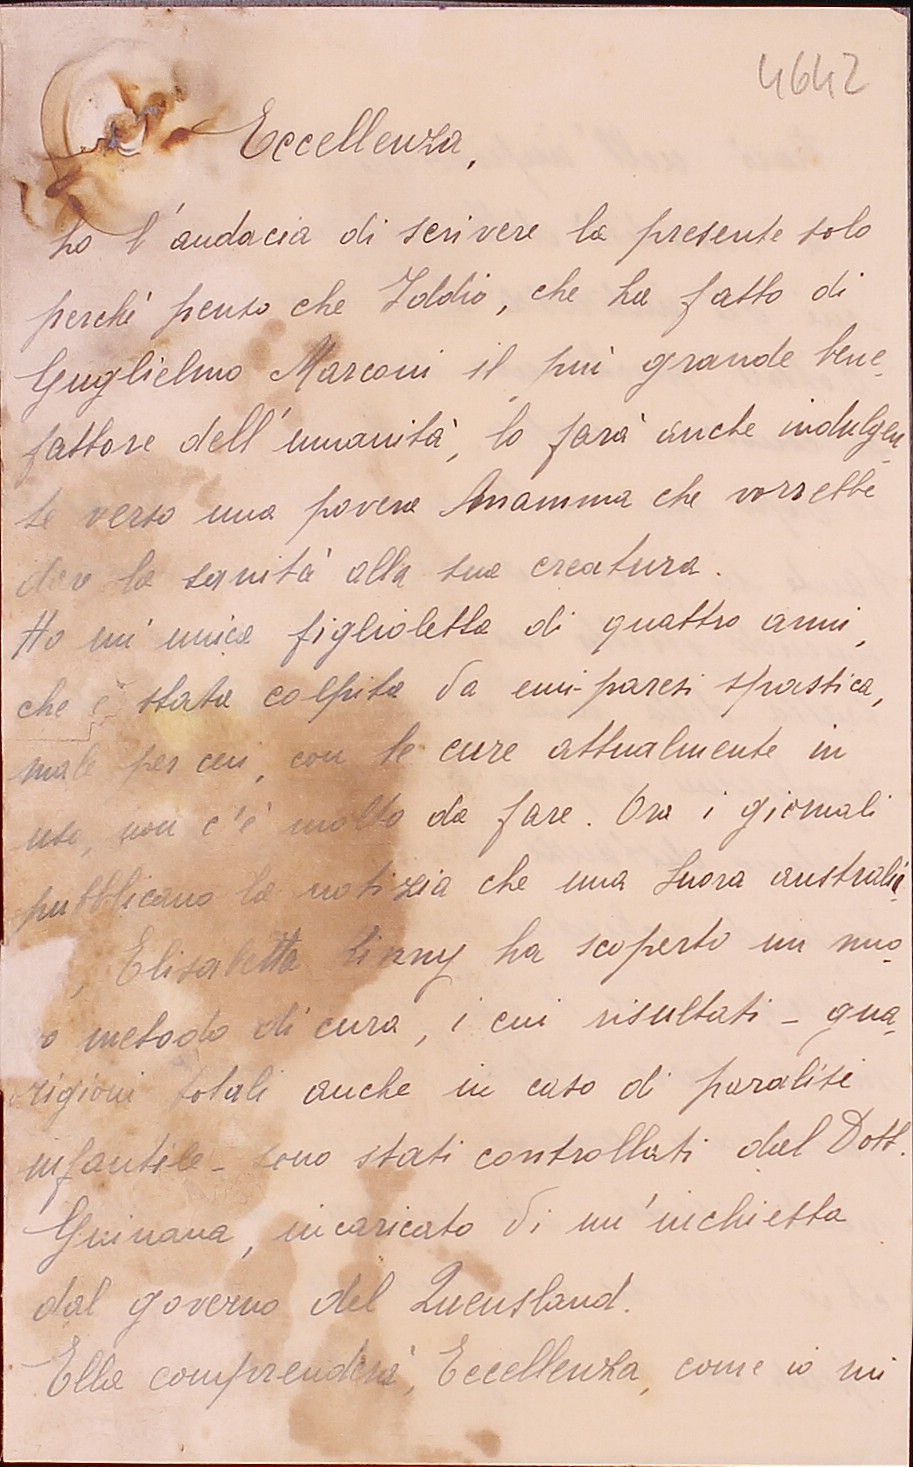 4642
Eccellenza,
ho l'audacia di scrivere la presente solo
perchè penso che Iddio, che ha fatto di
Guglielmo Marconi il più grande bene-
fattore dell'umanità, lo farà anche indulgen-
te verso una povera Mamma che vorrebbe
dar la sanità alla sua creatura.
Ho un'unica figlioletta di quattro anni,
che è stata colpita da emi-paresi spastica,
male per cui, con le cure attualmente in
uso, non c'è molto da fare. Ora i giornali
pubblicano la notizia che una Suora australia-
, Elisabetta Kinny ha scoperto un nuo-
o metodo di cura, i cui risultati - gua-
rigioni totali anche in caso di paralisi
infantile - sono stati controllati dal Dott.
Guinana, incaricato di un'inchiesta
dal governo del Queensland.
Ella comprenderà, Eccellenza, come io mi